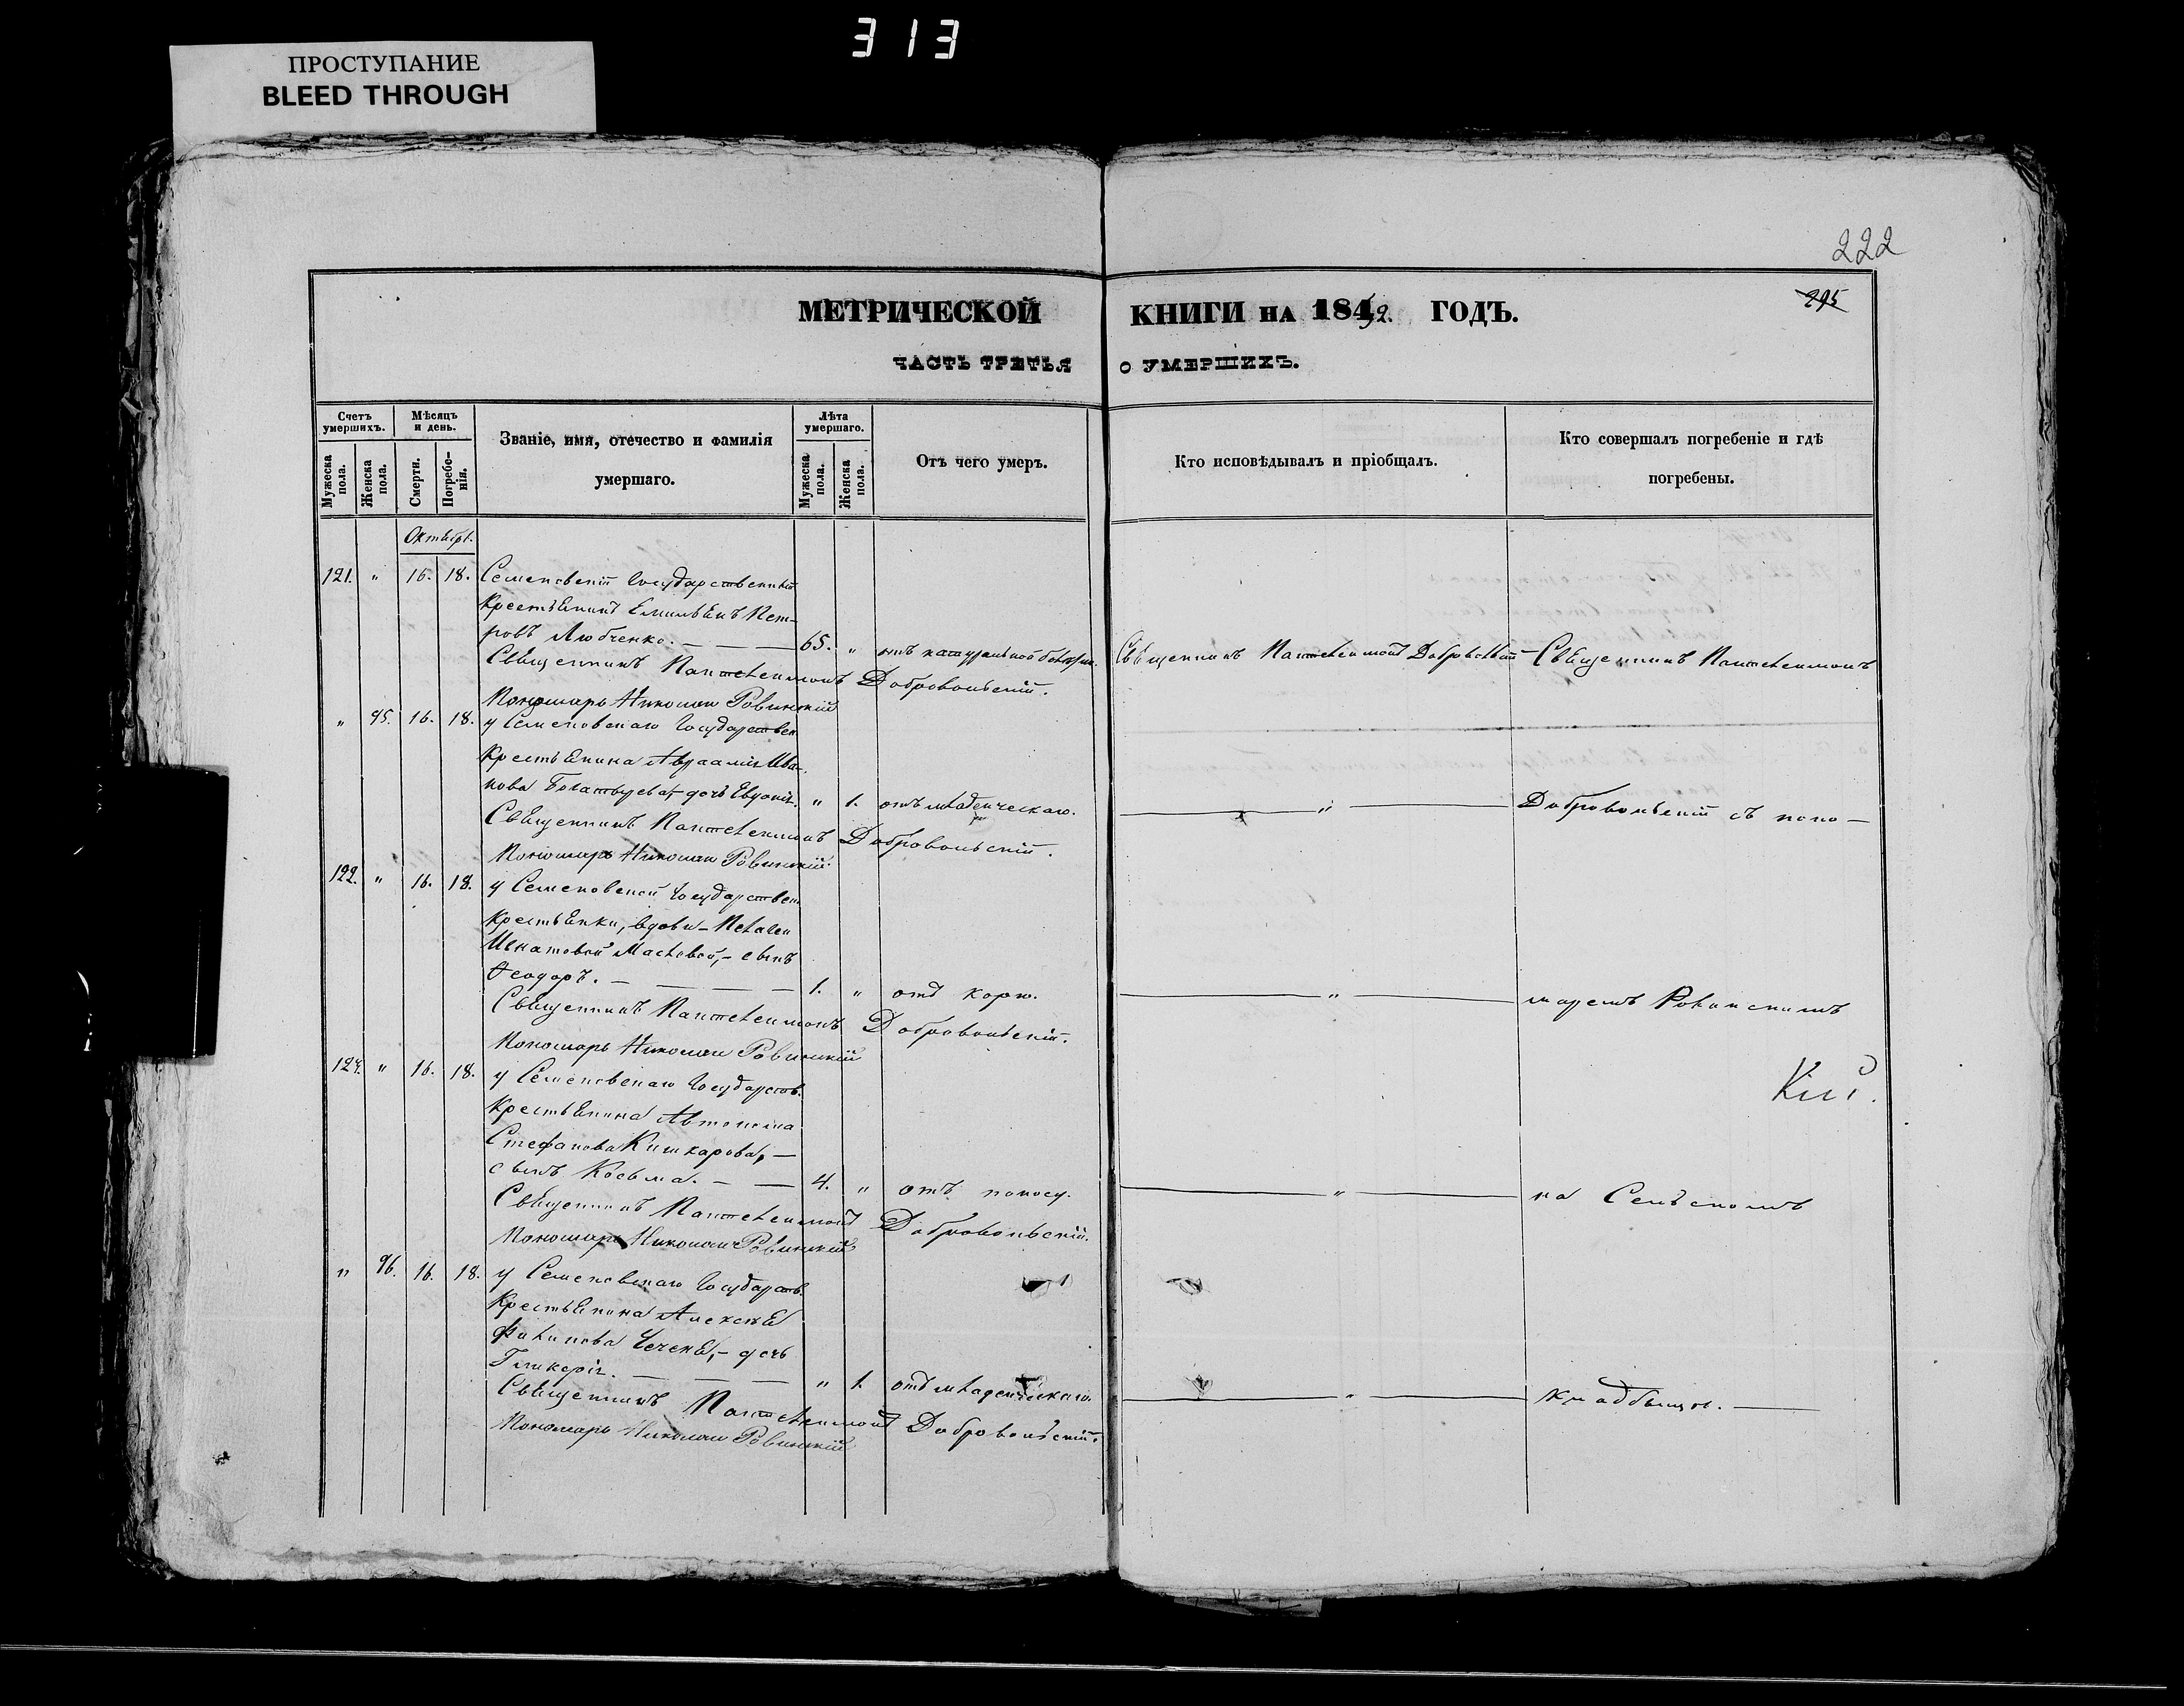 313
ПРОСТУПАНИЕ
BLEED THROUGH
222
295
МЕТРИЧЕСКОЙ КНИГИ НА 1852. ГОДЪ.
ЧАСТЬ ТРЕТЬЯ О УМЕРШИХЪ.
Счетъ умершихъ.
Мужеска пола.
Женска пола.
Мѣсяцъ и день.
Смерти.
Погребенія.
Званіе, имя, отечество и фамилія
умершаго.
Лѣта умершаго.
Мужеска пола.
Женска пола.
Отъ чего умеръ.
Кто исповѣдывалъ и пріобщалъ.
Кто совершалъ погребеніе и гдѣ
погребены.
Октябрь.
121. " 16. 18. Семеновскій Государственный
Крестьянинъ Емильянъ Пет-
ровъ Любченко. — 65. " отъ натуральной Священникъ Пантелеимонъ Добровольскій Священникъ Пантелеимонъ
Священникъ Пантелеимонъ Добровольскій.
Пономарь Николай Ровинский
" 95. 16. 18. у Семеновскаго Государствен
Крестьянина Авраамія Ива-
нова дочь Евдокія. " 1. отъ младенческаго. — " — Добровольскій съ поно-
Священникъ Пантелеимонъ Добровольскій.
Пономарь Николай Ровинский
122. " 16. 18. у Семеновской Государствен
Крестьянки, вдовы - Пелагеи
Игнатовой Масловой, - сынъ
Феодоръ. — 1. " отъ корю. — " — маремъ
Священникъ Пантелеимонъ Добровольскій.
Пономарь Николай Ровинский
124. " 16. 18. у Семеновскаго Государств.
Крестьянина Автонома
Стефанова Кишкарова, —
сынъ Косьма. — 4. " отъ поносу. — " — на Сельскомъ
Священникъ Пантелеимонъ Добровольскій.
Пономарь Николай Ровинский
" 96. 16. 18. у Семеновскаго Государств.
Крестьянина Алексея
Филипова Чечеля, - дочь
Гликерія. — " 1. отъ младенческаго. — " — кладбищи. —
Священникъ Пантелеимонъ Добровольскій.
Пономарь Николай Ровинский